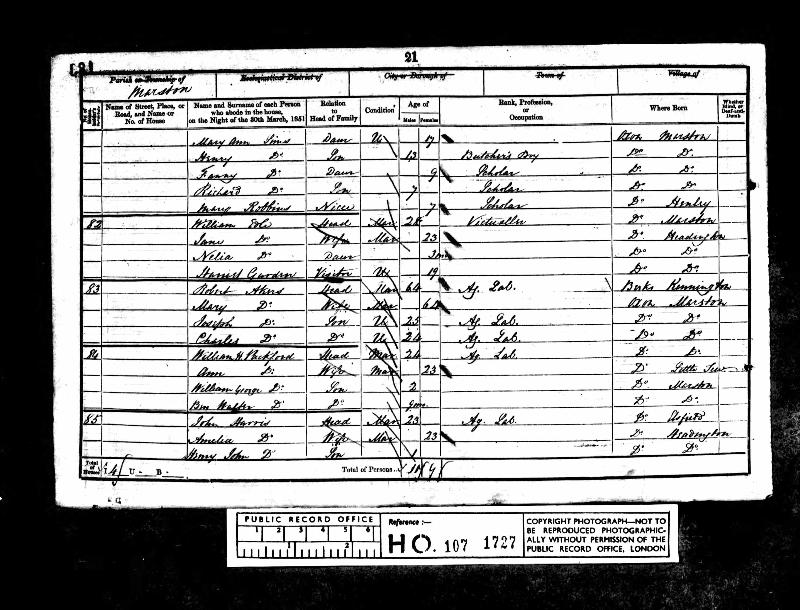 21
Parish or Township of Ecclesiastical District of City or Borough of Town of Village of
Marston
Name of Street, Place, or Road, and Name or No. of House
Name and Surname of each Person who abode in the house, on the Night of the 30th March, 1851
Relation to Head of Family
Condition
Age of
Males Females
Rank, Profession, or Occupation
Where Born
Whether Blind, or Deaf-and-Dumb
Mary Ann Sims Daur U 17 Oxon Marston
Henry Do Son 12 Butcher's Boy Do Do
Fanny Do Daur 9 Scholar Do Do
Richard Do Son 7 Scholar Do Do
Mary Robbins Niece 7 Scholar Do Henley
82 William Head Mar 28 Victualler Do Marston
Jane Do Wife Mar 23 Do Headington
Do Daur 3mo Do Do
Visitor U 19 Do Do
83 Robert Akers Head Mar 64 Ag. Lab. Berks Kennington
Mary Do Wife Mar 64 Oxon Marston
Joseph Do Son U 25 Ag. Lab. Do Do
Charles Do Do U 24 Ag. Lab. Do Do
84 William H. Head Mar 24 Ag. Lab. Do Do
Ann Do Wife Mar 23 Do Little
William George Do Son 2 Do Marston
Ben Walter Do Do 9mo Do Do
85 John Harris Head Mar 23 Ag. Lab. Do Elsfield
Amelia Do Wife Mar 23 Do Headington
Henry John Do Son 1 Do Do
Total of Houses 4 U - B - Total of Persons
PUBLIC RECORD OFFICE
1 2 3 4 5 6
1 2
Reference :-
HO. 107 1727
COPYRIGHT PHOTOGRAPH—NOT TO
BE REPRODUCED PHOTOGRAPHIC-
ALLY WITHOUT PERMISSION OF THE
PUBLIC RECORD OFFICE, LONDON